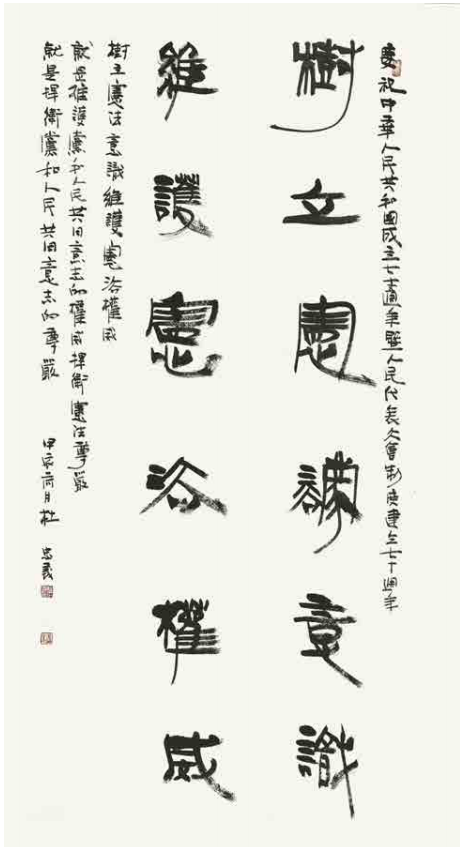 慶祝中華人民共和國成立七十五週年暨人民代表大會制度建立七十週年
樹立憲灋意識
維護憲法權威
樹立憲法意識維護憲法權威
就是維護黨和人民共同意志的權威捍衛憲法尊嚴
就是捍衛黨和人民共同意志的尊嚴
甲辰月杜忠義